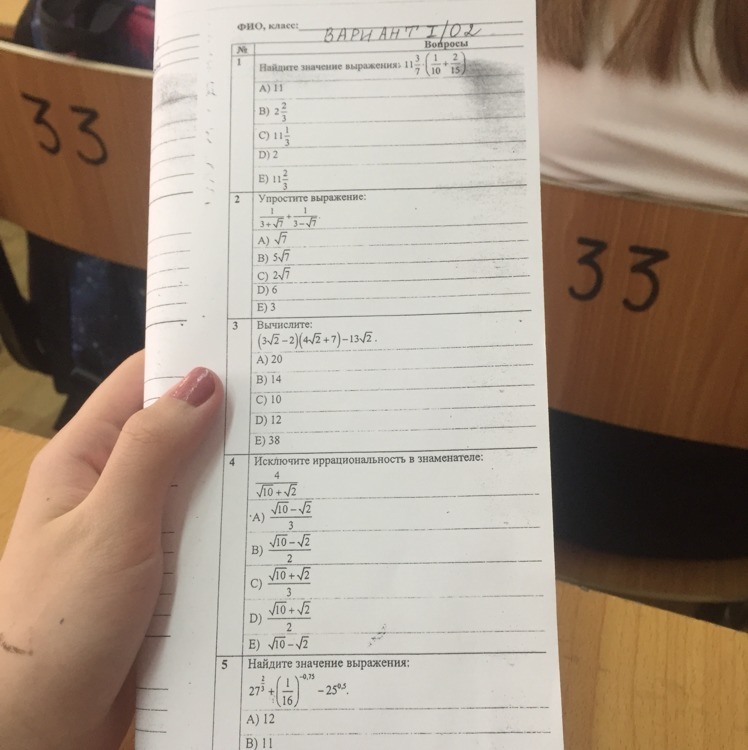 ФИО, класс: ВАРИАНТ I/02
№ Вопросы
1 Найдите значение выражения: 11 3/7 · (1/10 + 2/15)
A) 11
B) 2 2/3
C) 11 1/3
D) 2
E) 11 2/3
2 Упростите выражение:
1/(3+√7) + 1/(3−√7)
A) √7
B) 5√7
C) 2√7
D) 6
E) 3
3 Вычислите:
(3√2 − 2)(4√2 + 7) − 13√2.
A) 20
B) 14
C) 10
D) 12
E) 38
4 Исключите иррациональность в знаменателе:
4/(√10 + √2)
A) (√10 − √2)/3
B) (√10 − √2)/2
C) (√10 + √2)/3
D) (√10 + √2)/2
E) √10 − √2
5 Найдите значение выражения:
27^(2/3) + (1/16)^(-0,75) − 25^(0,5).
A) 12
B) 11
33
33